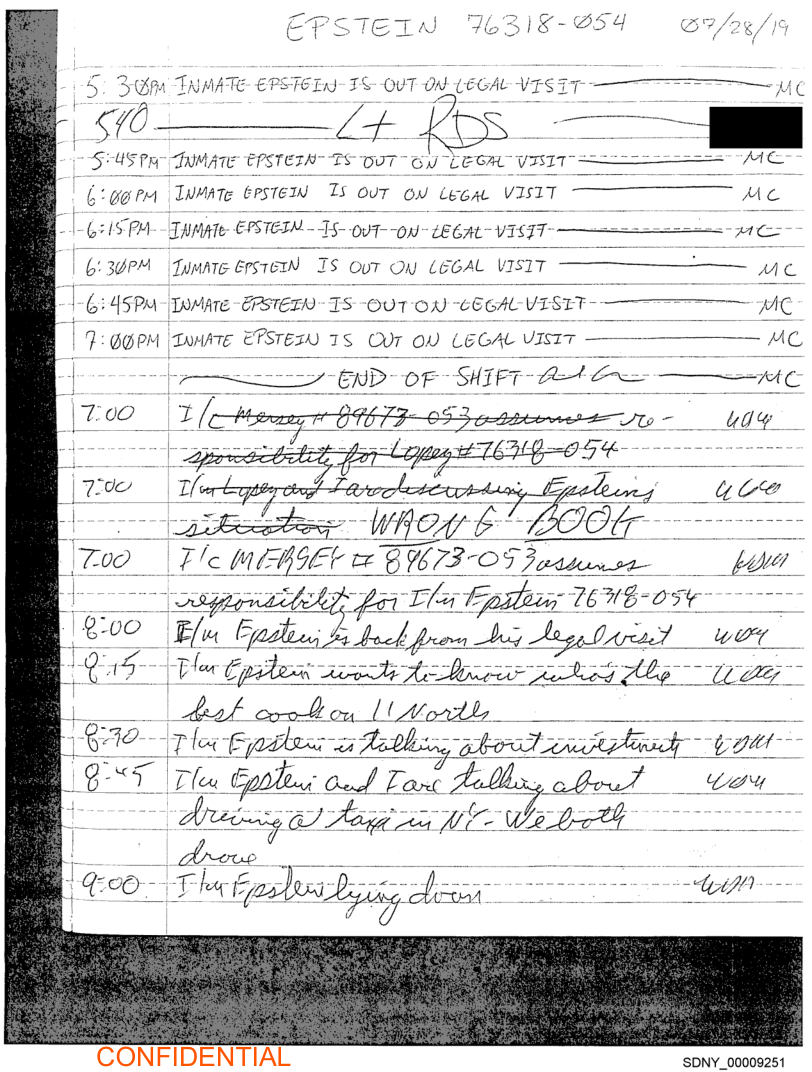 EPSTEIN 76318-054 07/28/19
5:30PM INMATE EPSTEIN IS OUT ON LEGAL VISIT MC
540 Lt RDS
5:45PM INMATE EPSTEIN IS OUT ON LEGAL VISIT MC
6:00PM INMATE EPSTEIN IS OUT ON LEGAL VISIT MC
6:15PM INMATE EPSTEIN IS OUT ON LEGAL VISIT MC
6:30PM INMATE EPSTEIN IS OUT ON LEGAL VISIT MC
6:45PM INMATE EPSTEIN IS OUT ON LEGAL VISIT MC
7:00PM INMATE EPSTEIN IS OUT ON LEGAL VISIT MC
END OF SHIFT MC
7:00 I/c Mersey # 89673-053 assumes re-
sponsibility for Lopez # 76318-054
7:00 I/m Lopez and I are discussing Epsteins
situation WRONG BOOK
7:00 I/c MERSEY # 89673-053 assumes
responsibility for I/m Epstein 76318-054
8:00 I/m Epstein is back from his legal visit
8:15 I/m Epstein wants to know who's the
best cook on 11 North
8:30 I/m Epstein is talking about investments
8:45 I/m Epstein and I are talking about
driving a taxi in NY - We both
drove
9:00 I/m Epstein lying down
CONFIDENTIAL
SDNY_00009251